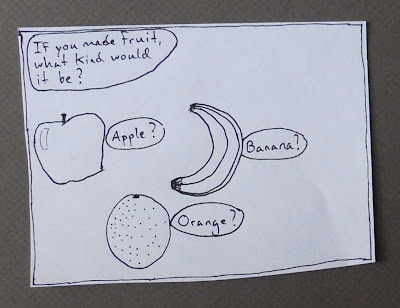 If you made fruit,
what kind would
it be?
Apple?
Banana?
Orange?